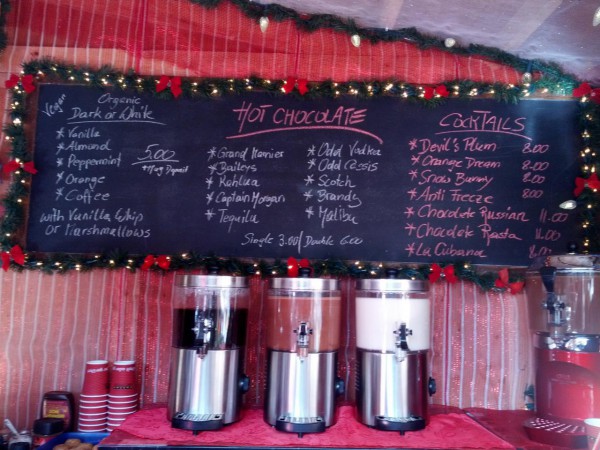 Vegan
Organic
Dark or White
* Vanilla
* Almond
* Peppermint
* Orange
* Coffee
5.00
+ Mug Deposit
with Vanilla Whip
or Marshmallows
HOT CHOCOLATE
* Grand Marnier
* Baileys
* Kahlua
* Captain Morgan
* Tequila
* Odd Vodka
* Odd Cassis
* Scotch
* Brandy
* Malibu
Single 3.00/Double 6.00
COCKTAILS
* Devil's Plum 8.00
* Orange Dream 8.00
* Snow Bunny 8.00
* Anti Freeze 8.00
* Chocolate Russian 11.00
* Chocolate Rasta 11.00
* La Cubana 8.00